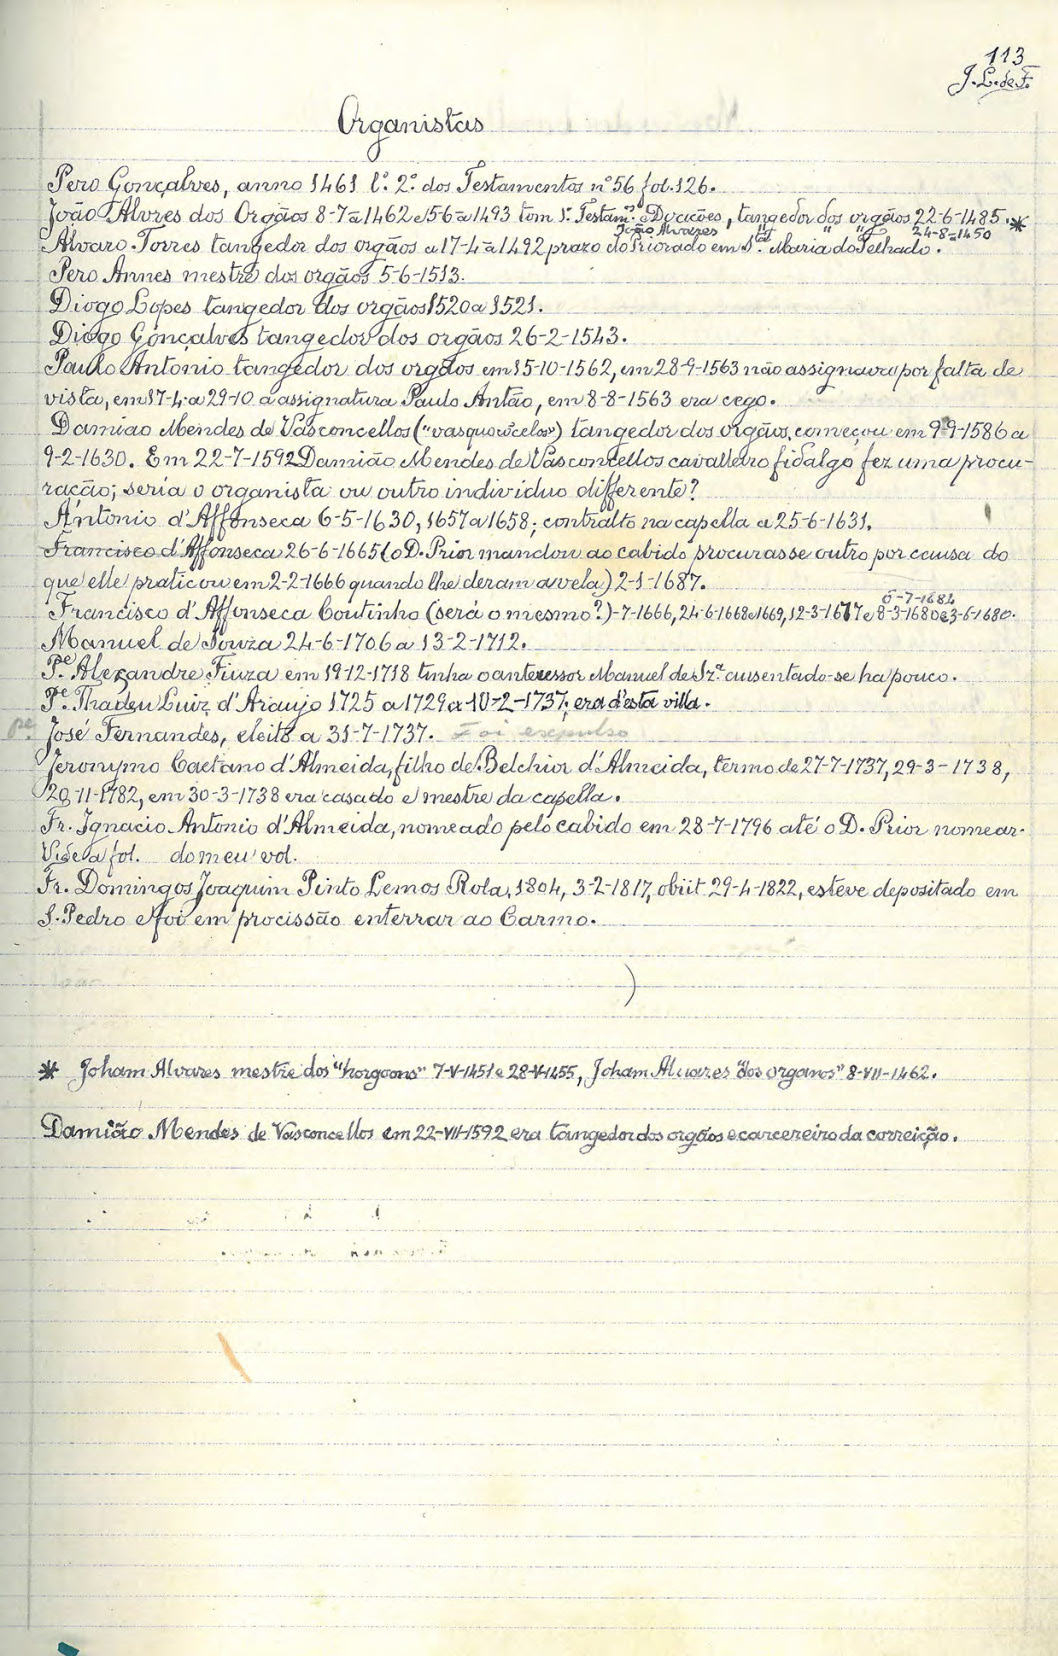 113
J. L. de F.
Organistas
Pero Gonçalves, anno 1461 l.º 2.º dos Testamentos nº 56 fol. 126.
João Alvres dos Orgãos 8-7-1462 e 5-6-1493 tom 1.º Testam.tos e Doações, tangedor dos orgãos 22-6-1485. *
João Alvares " " " 24-8-1450
Alvaro Torres tangedor dos orgãos a 17-4-1492 prazo do Priorado em S.ta Maria do Selhado.
Pero Annes mestre dos orgãos 5-6-1513.
Diogo Lopes tangedor dos orgãos 1520 a 1521.
Diogo Gonçalves tangedor dos orgãos 26-2-1543.
Paulo Antonio tangedor dos orgãos em 15-10-1562, em 28-9-1563 não assignava por falta de
vista, em 17-4 a 29-10 a assignatura Paulo Antão, em 8-8-1563 era cego.
Damião Mendes de Vasconcellos ( ) tangedor dos orgãos, começou em 9-9-1586 a
9-2-1630. Em 22-7-1592 Damião Mendes de Vasconcellos cavalleiro fidalgo fez uma procu-
ração; seria o organista ou outro individuo differente?
Antonio d'Affonseca 6-5-1630, 1657 a 1658; contralto na capella a 25-6-1631.
Francisco d'Affonseca 26-6-1665 (o D. Prior mandou ao cabido procurasse outro por causa do
que elle praticou em 2-2-1666 quando lhe deram a vela) 2-1-1687.
6-7-1684
Francisco d'Affonseca Coutinho (será o mesmo?) -7-1666, 24-6-1668 e 1669, 12-3-1677 e 8-3-1680 e 3-6-1680.
Manuel de Souza 24-6-1706 a 13-2-1712.
P.e Alexandre Fiuza em 19-12-1718 tinha o antecessor Manuel de Sz.a ausentado-se ha pouco.
P.e Thadeu Luiz d'Araujo 1725 a 1729 a 10-2-1737; era d'esta villa.
P.e José Fernandes, eleito a 31-7-1737. Foi expulso
Jeronymo Caetano d'Almeida, filho de Belchior d'Almeida, termo de 27-7-1737, 29-3-1738,
29-11-1782, em 30-3-1738 era casado e mestre da capella.
Fr. Ignacio Antonio d'Almeida, nomeado pelo cabido em 28-7-1796 até o D. Prior nomear.
Vide a fol. do meu vol.
Fr. Domingos Joaquim Pinto Lemos Rola, 1804, 3-2-1817, obiit 29-4-1822, esteve depositado em
S. Pedro e foi em procissão enterrar ao Carmo.
)
* Joham Alvares mestre dos "horgoons" 7-V-1451 e 28-V-1455, Joham Alvares "dos organos" 8-VII-1462.
Damião Mendes de Vasconcellos em 22-VII-1592 era tangedor dos orgãos e carcereiro da correição.